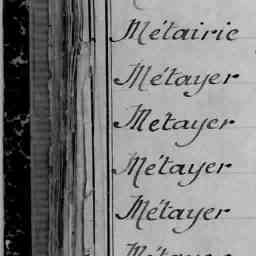 Métairie
Métayer
Metayer
Métayer
Métayer
Métayer